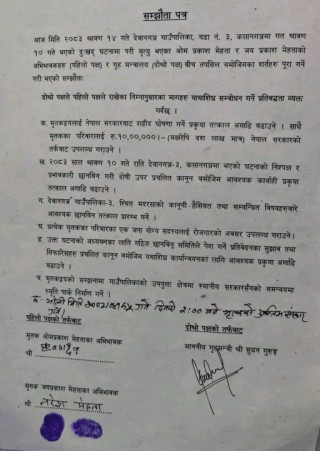 सम्झौता पत्र
आज मिति २०८३ श्रावण १४ गते देवानगञ्ज गाउँपालिका, वडा नं. ३, कप्तानगञ्जमा गत श्रावण
१० गते भएको दुःखद् घटनामा परी मृत्यु भएको ओम प्रकाश मेहता र जय प्रकाश मेहताको
अभिभावकहरु (पहिलो पक्ष) र गृह मन्त्रालय (दोश्रो पक्ष) बीच तपसिल बमोजिमका शर्तहरु पुरा गर्ने
गरी भएको सम्झौताः
दोश्रो पक्षले पहिलो पक्षले राखेका निम्नानुसारका मागहरु यथाशिघ्र सम्बोधन गर्ने प्रतिवद्धता व्यक्त
गर्दछ ।
क. मृतकद्वयलाई नेपाल सरकारबाट शहीद घोषणा गर्ने प्रकृया तत्काल अगाडी बढाउने । साथै
मृतकका परिवारलाई रु.१०,००,०००/- (अक्षरेपि दश लाख मात्र) नेपाल सरकारको
तर्फबाट उपलब्ध गराउने ।
ख. २०८३ साल श्रावण १० गते राति देवानगञ्ज-३, कप्तानगञ्जमा भएको घटनाको निष्पक्ष र
प्रभावकारी छानविन गरी दोषी उपर प्रचलित कानून बमोजिम आवश्यक कार्वाही प्रकृया
तत्काल अगाडी बढाउने ।
ग. देवानगञ्ज गाउँपालिका-३, स्थित मदरसाको कानूनी हैसियत तथा सम्बन्धित विषयहरुबारे
आवश्यक छानविन तत्काल प्रारम्भ गर्ने ।
घ. प्रत्येक मृतकका परिवारका एक जना योग्य सदस्यलाई रोजगारको अवसर उपलब्ध गराउने ।
ङ. उक्त घटनाको अध्ययनका लागि गठित छानविन समितिले पेश गर्ने प्रतिवेदनका सुझाव तथा
सिफारिसहरु प्रचलित कानून बमोजिम यथाशिघ्र कार्यान्वयनका लागि आवश्यक प्रकृया अगाडी
बढाउने ।
च. मृतकद्वयको सम्झनामा गाउँपालिकाको उपयुक्त क्षेत्रमा स्थानीय सरकारसँगको समन्वयमा
स्मृति पार्क निर्माण गर्ने ।
गते
गर्ने ।
पहिलो पक्षको तर्फबाट
दोश्रो पक्षको तर्फबाट
मृतक ओमप्रकाश मेहताका अभिभावक
श्री
माननीय गृहमन्त्री श्री सुधन गुरुङ
मृतक जयप्रकाश मेहताका अभिभावक
श्री नरेश मेहता